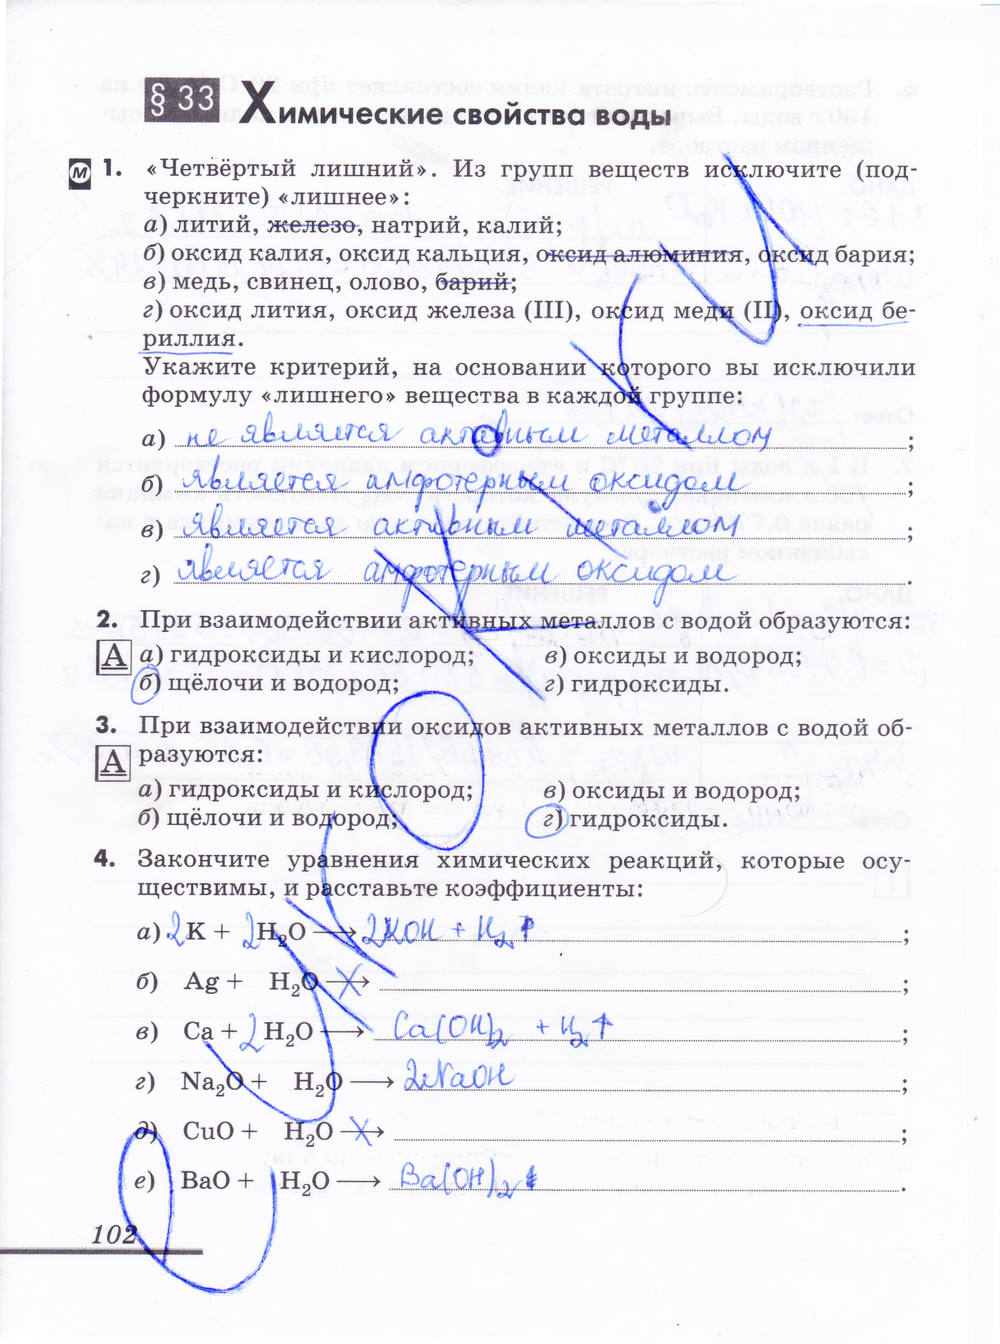 § 33 Химические свойства воды
м 1. «Четвёртый лишний». Из групп веществ исключите (под-
черкните) «лишнее»:
а) литий, железо, натрий, калий;
б) оксид калия, оксид кальция, оксид алюминия, оксид бария;
в) медь, свинец, олово, барий;
г) оксид лития, оксид железа (III), оксид меди (II), оксид бе-
риллия.
Укажите критерий, на основании которого вы исключили
формулу «лишнего» вещества в каждой группе:
а) не является активным металлом ;
б) является амфотерным оксидом ;
в) является активным металлом ;
г) является амфотерным оксидом .
2. При взаимодействии активных металлов с водой образуются:
А а) гидроксиды и кислород; в) оксиды и водород;
б) щёлочи и водород; г) гидроксиды.
3. При взаимодействии оксидов активных металлов с водой об-
А разуются:
а) гидроксиды и кислород; в) оксиды и водород;
б) щёлочи и водород; г) гидроксиды.
4. Закончите уравнения химических реакций, которые осу-
ществимы, и расставьте коэффициенты:
а) 2K + 2H₂O ⟶ 2KOH + H₂↑ ;
б) Ag + H₂O ⟶ ;
в) Ca + 2H₂O ⟶ Ca(OH)₂ + H₂↑ ;
г) Na₂O + H₂O ⟶ 2NaOH ;
д) CuO + H₂O ⟶ ;
е) BaO + H₂O ⟶ Ba(OH)₂ .
102